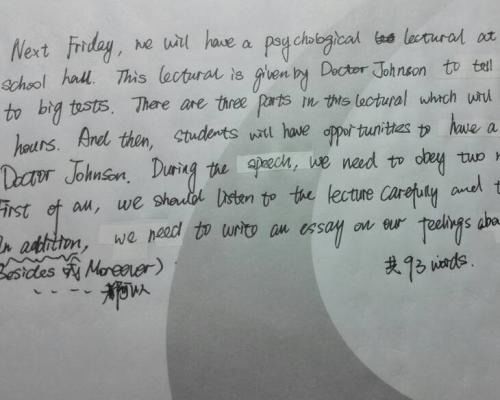 Next Friday, we will have a psychological lectural at
school hall. This lectural is given by Doctor Johnson to tell
to big tests. There are three parts in this lectural which will
hours. And then, students will have opportunities to have a
Doctor Johnson. During the speech, we need to obey two
First of all, we should listen to the lecture carefully and
In addition, we need to write an essay on our feelings abo
Besides 或 Moreover) 共93 words.
都可以